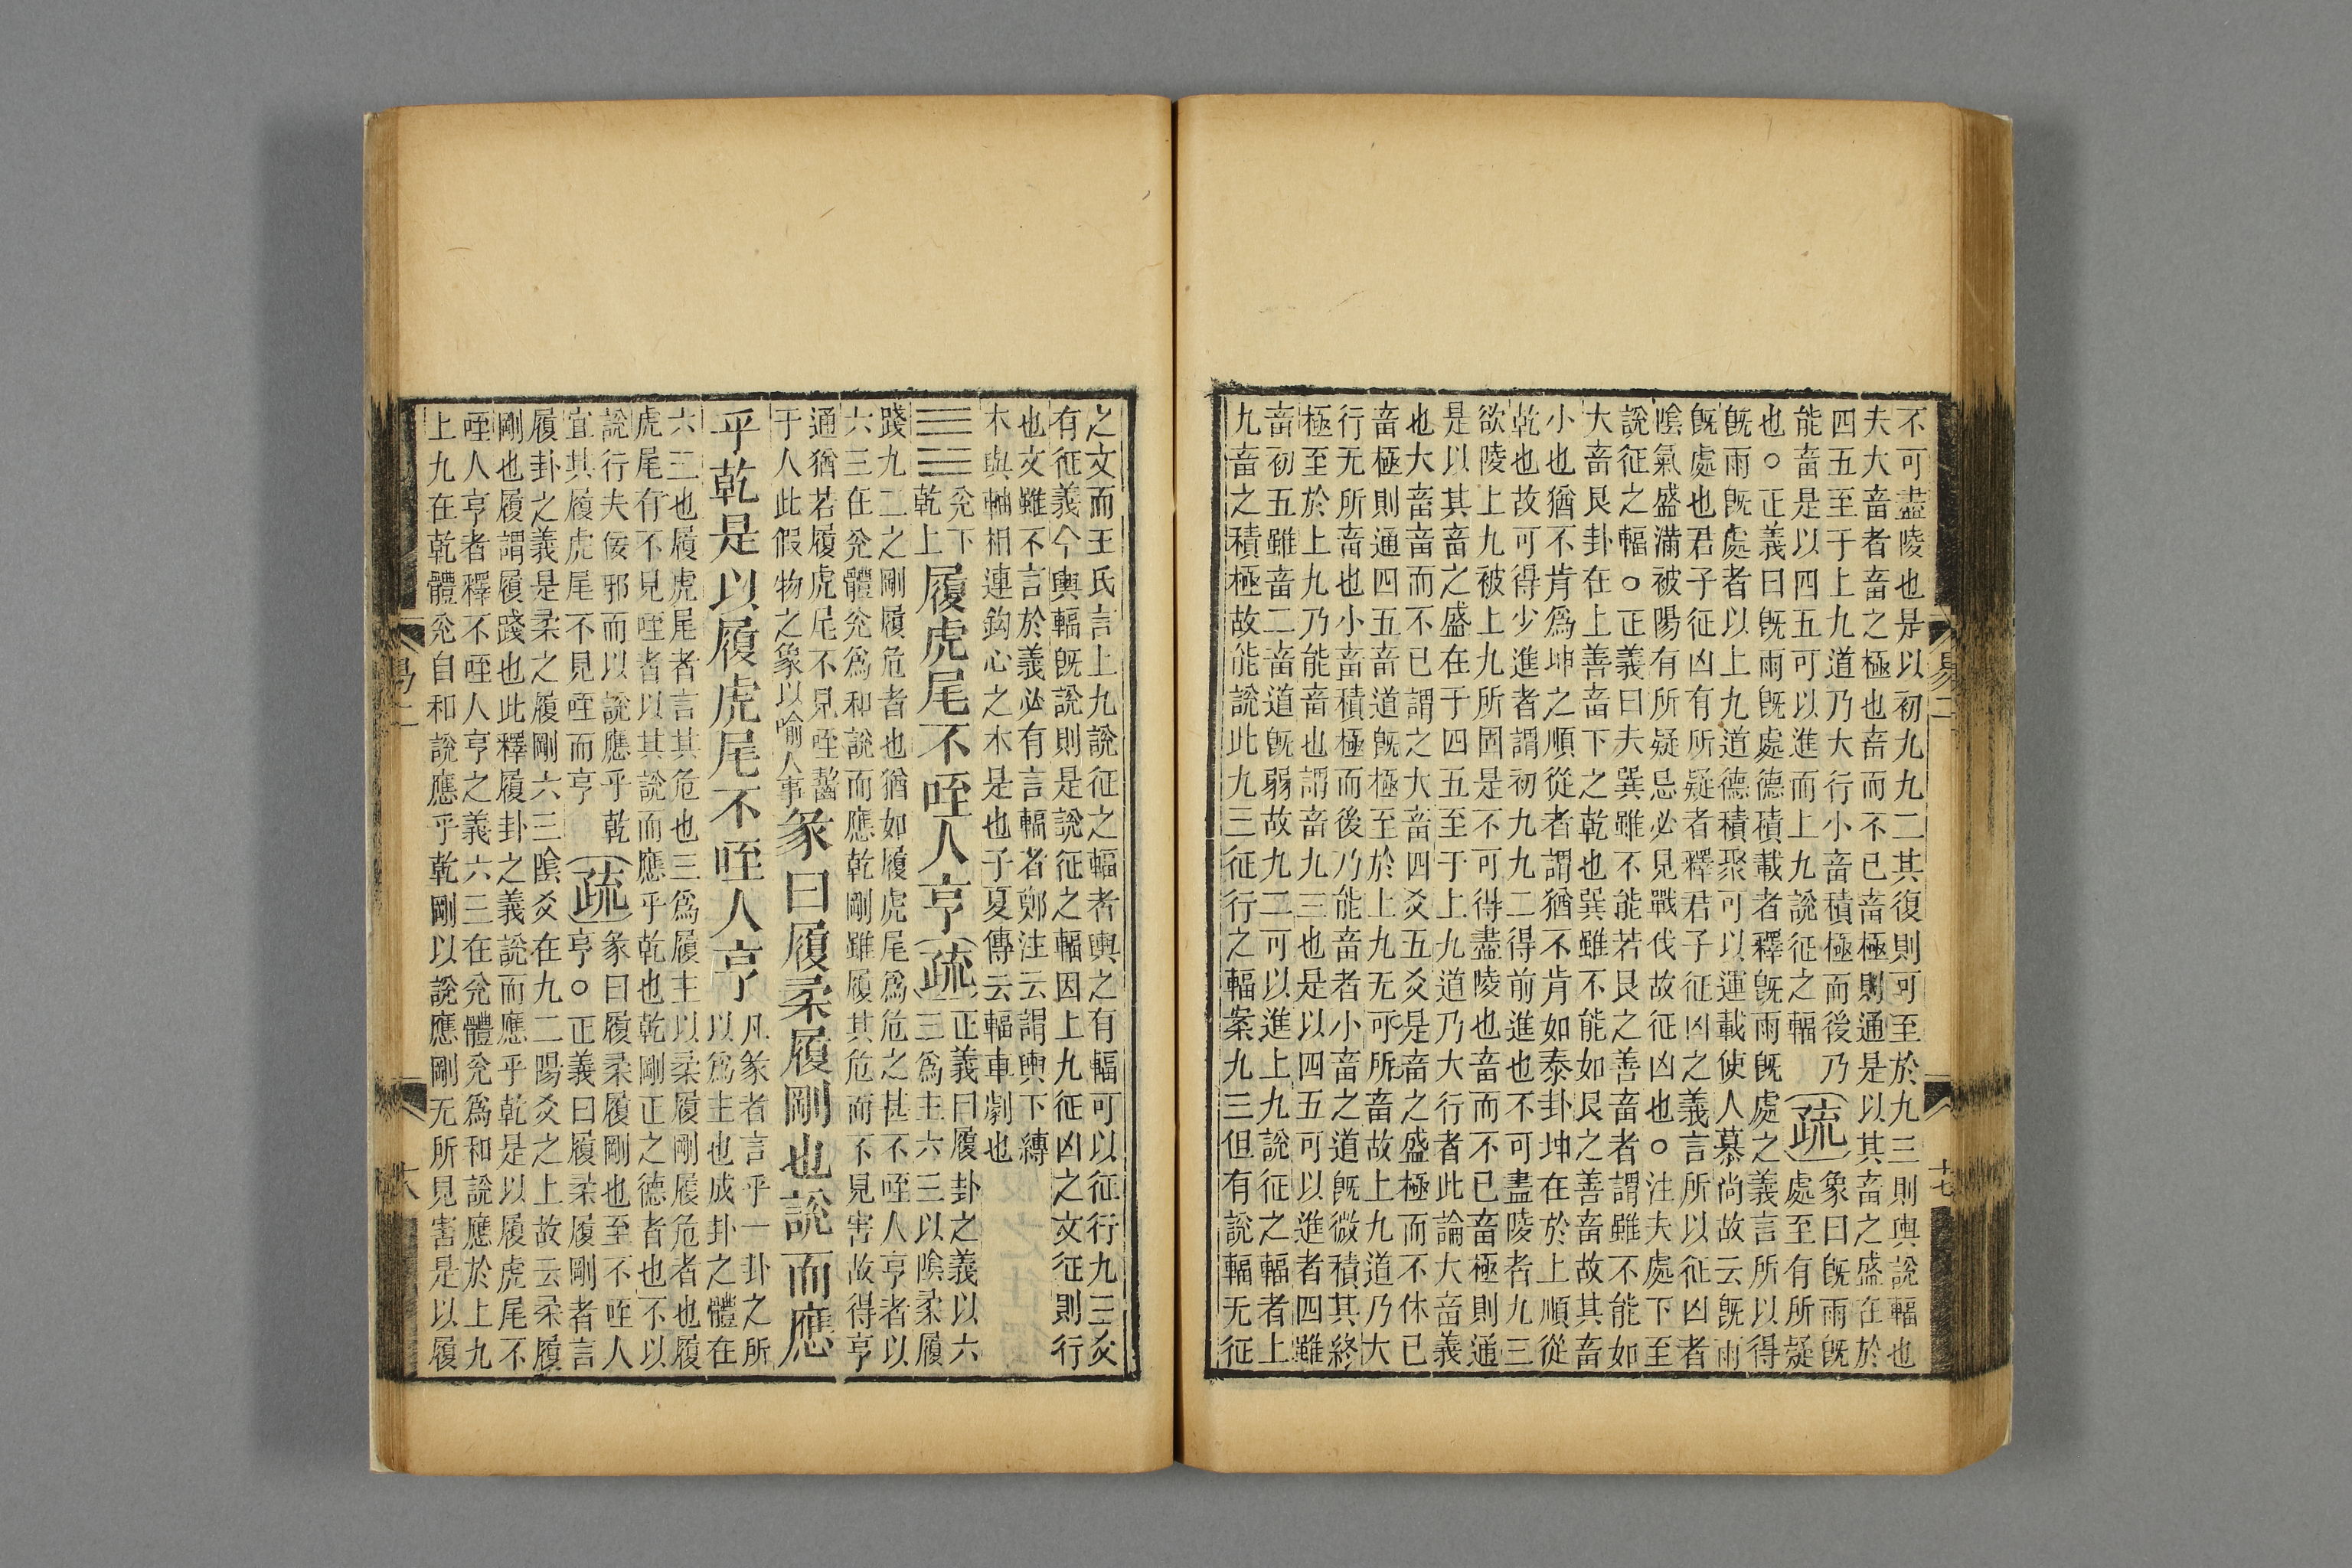 易二
十七
不可盡陵也是以初九九二其復則可至於九三則輿說輻也
夫大畜者畜之極也畜而不已畜極則通是以其畜之盛在於
四五至于上九道乃大行小畜積極而後乃
能畜是以四五可以進而上九說征之輻
疏
象曰既雨既
處至有所疑
也○正義曰既雨既處德積載者釋既雨既處之義言所以得
既雨既處者以上九道德積聚可以運載使人慕尚故云既雨
既處也君子征凶有所疑者釋君子征凶之義言所以征凶者
陰氣盛滿被陽有所疑忌必見戰伐故征凶也○注夫處下至
說征之輻○正義曰夫巽雖不能若艮之善畜者謂雖不能如
大畜艮卦在上善畜下之乾也巽雖不能如艮之善畜故其畜
小也猶不肯爲坤之順從者謂猶不肯如泰卦坤在於上順從
乾也故可得少進者謂初九九二得前進也不可盡陵者九三
欲陵上九被上九所固是不可得盡陵也畜而不已畜極則通
是以其畜之盛在于四五至于上九道乃大行者此論大畜義
也大畜畜而不已謂之大畜四爻五爻是畜之盛極而不休已
畜極則通四五畜道既極至於上九无可所畜故上九道乃大
行无所畜也小畜積極而後乃能畜者小畜之道既微積其終
極至於上九乃能畜也謂畜九三也是以四五可以進者四雖
畜初五雖畜二畜道既弱故九二可以進上九說征之輻者上
九畜之積極故能說此九三征行之輻案九三但有說輻无征
之文而王氏言上九說征之輻者輿之有輻可以征行九三爻
有征義今輿輻既說則是說征之輻因上九征凶之文征則行
也文雖不言於義必有言輻者鄭注云謂輿下縛
木與軸相連鈎心之木是也子夏傳云輻車劇也
䷉
兌下
乾上
履虎尾不咥人亨
疏
正義曰履卦之義以六
三爲主六三以陰柔履
踐九二之剛履危者也猶如履虎尾爲危之甚不咥人亨者以
六三在兌體兌爲和說而應乾剛雖履其危而不見害故得亨
通猶若履虎尾不見咥齧
于人此假物之象以喻人事
彖曰履柔履剛也說而應
乎乾是以履虎尾不咥人亨
凡彖者言乎一卦之所
以爲主也成卦之體在
六三也履虎尾者言其危也三爲履主以柔履剛履危者也履
虎尾有不見咥者以其說而應乎乾也乾剛正之德者也不以
說行夫佞邪而以說應乎乾
宜其履虎尾不見咥而亨
疏
彖曰履柔履剛也至不咥人
亨○正義曰履柔履剛者言
履卦之義是柔之履剛六三陰爻在九二陽爻之上故云柔履
剛也履謂履踐也此釋履卦之義說而應乎乾是以履虎尾不
咥人亨者釋不咥人亨之義六三在兌體兌爲和說應於上九
上九在乾體兌自和說應乎乾剛以說應剛无所見害是以履
易二